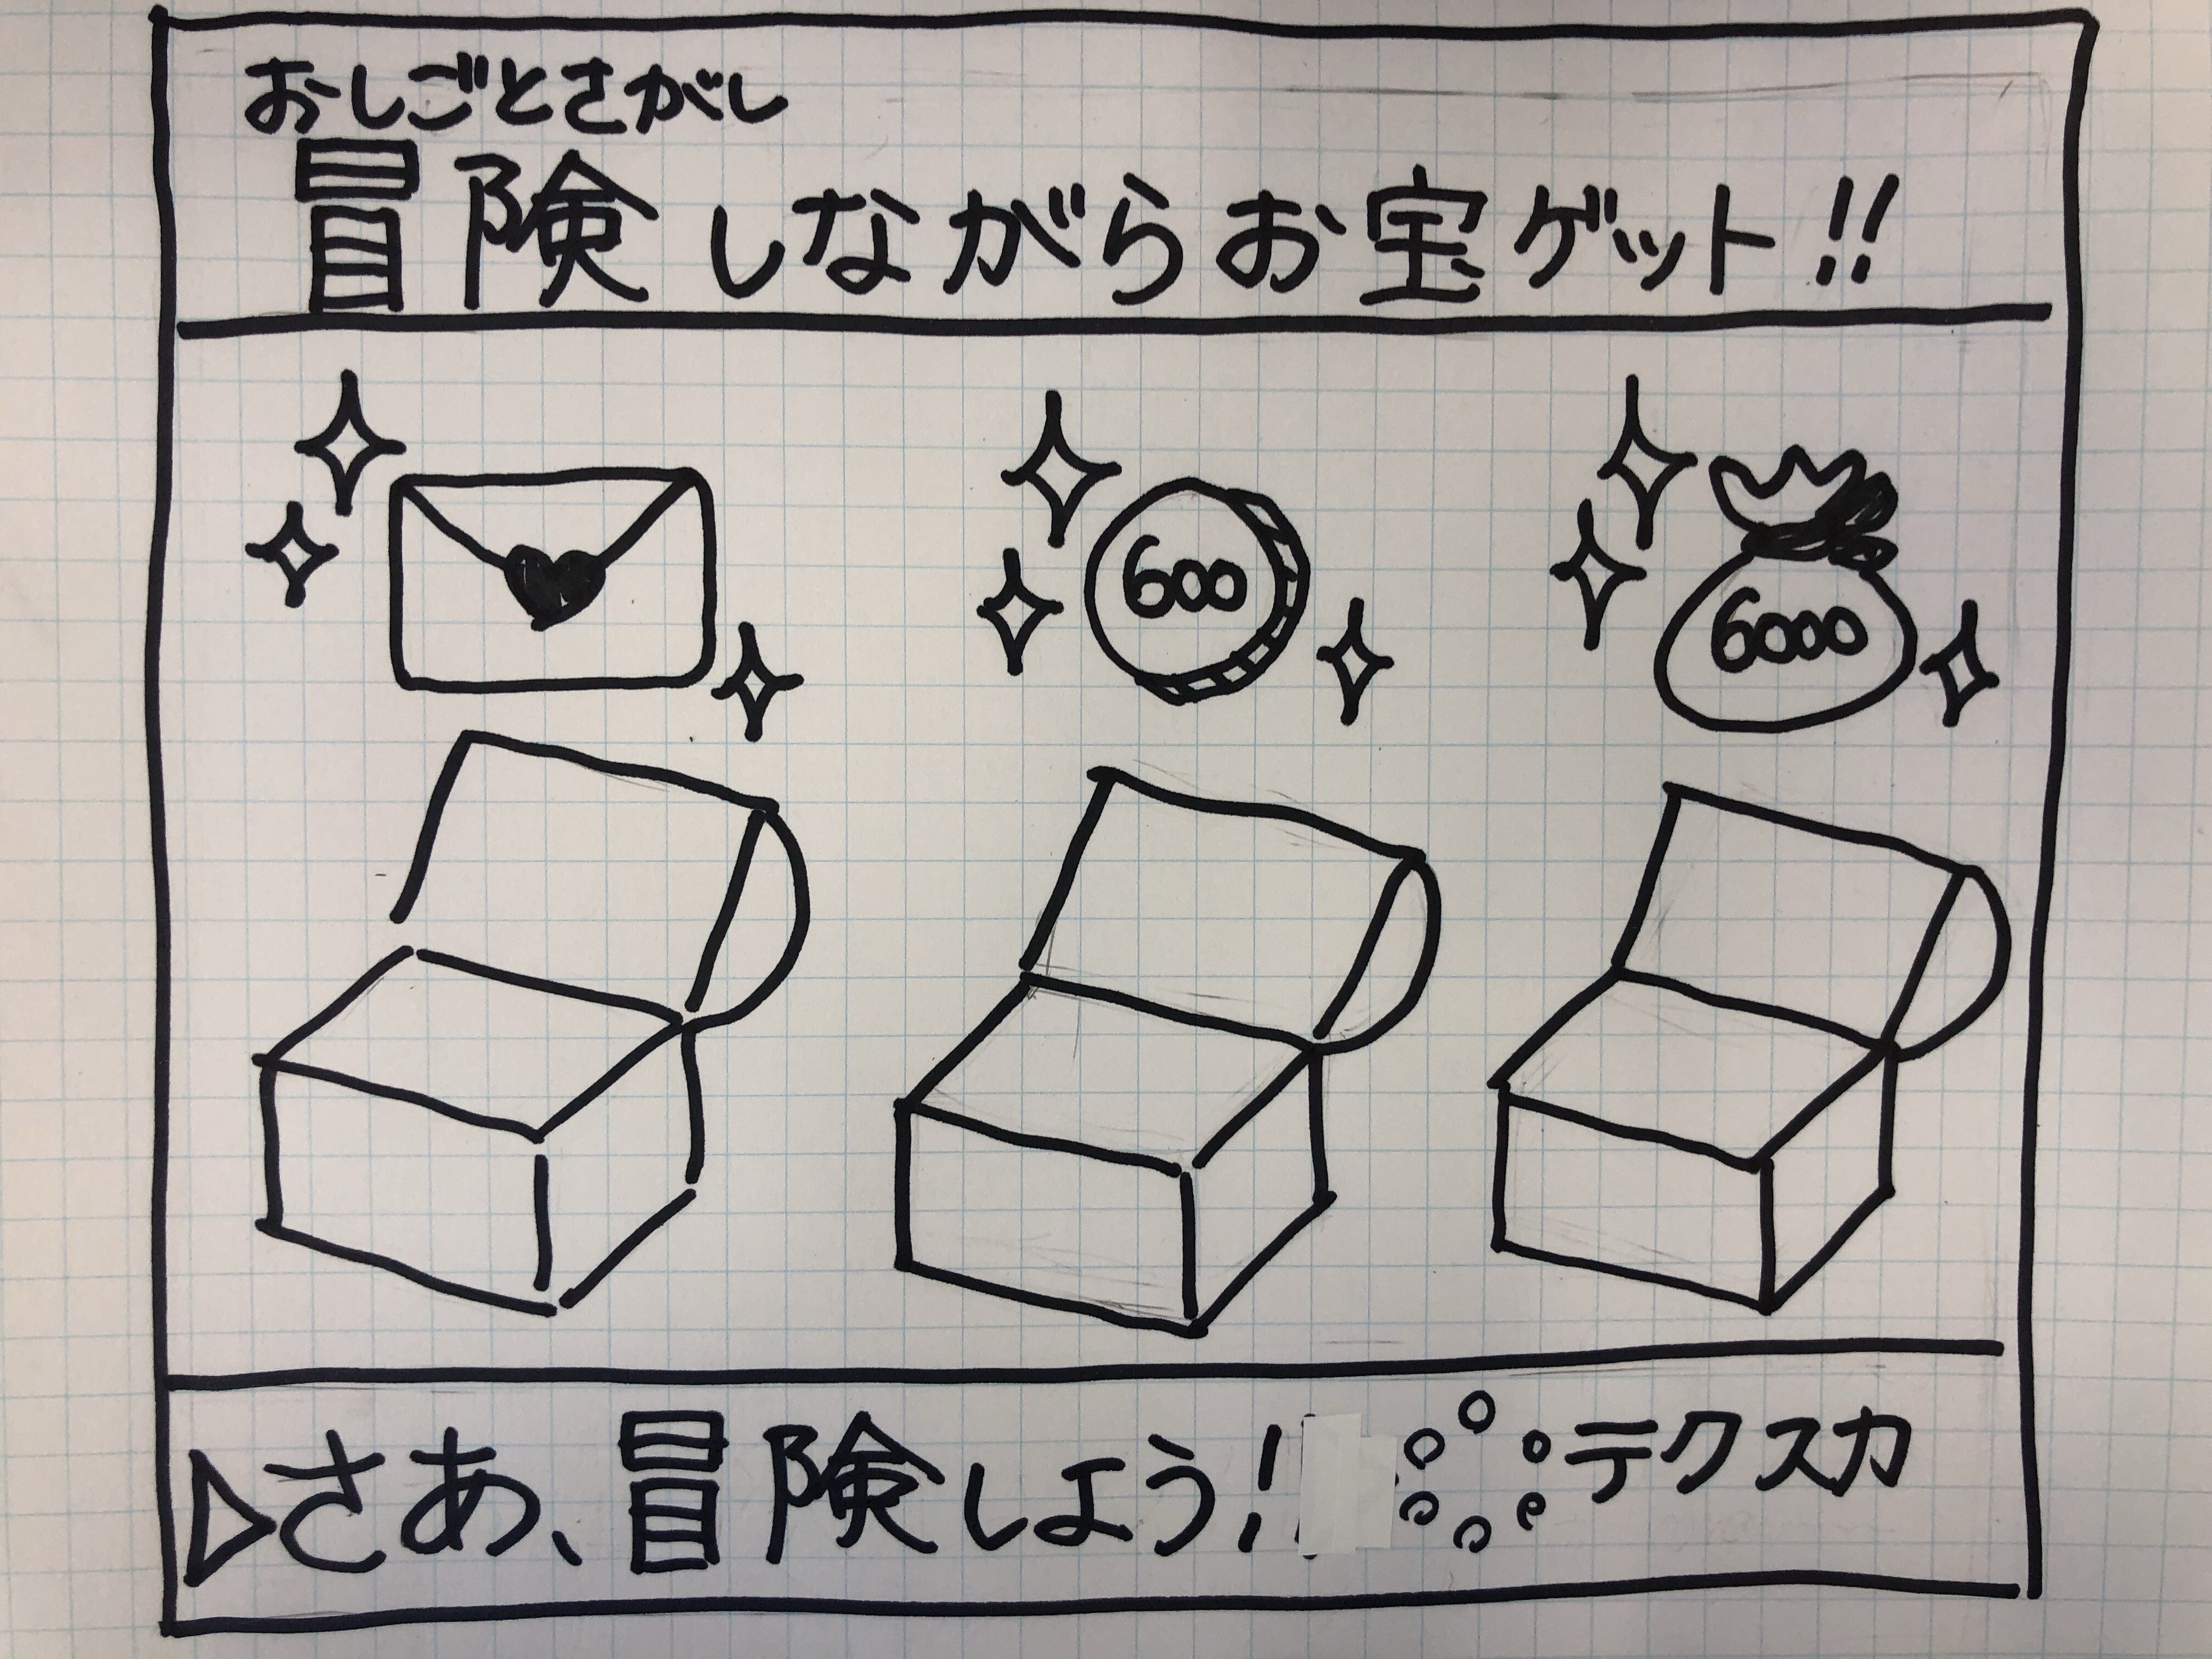 おしごとさがし
冒険しながらお宝ゲット!!
600
6000
▷さあ、冒険しよう!
テクスカ